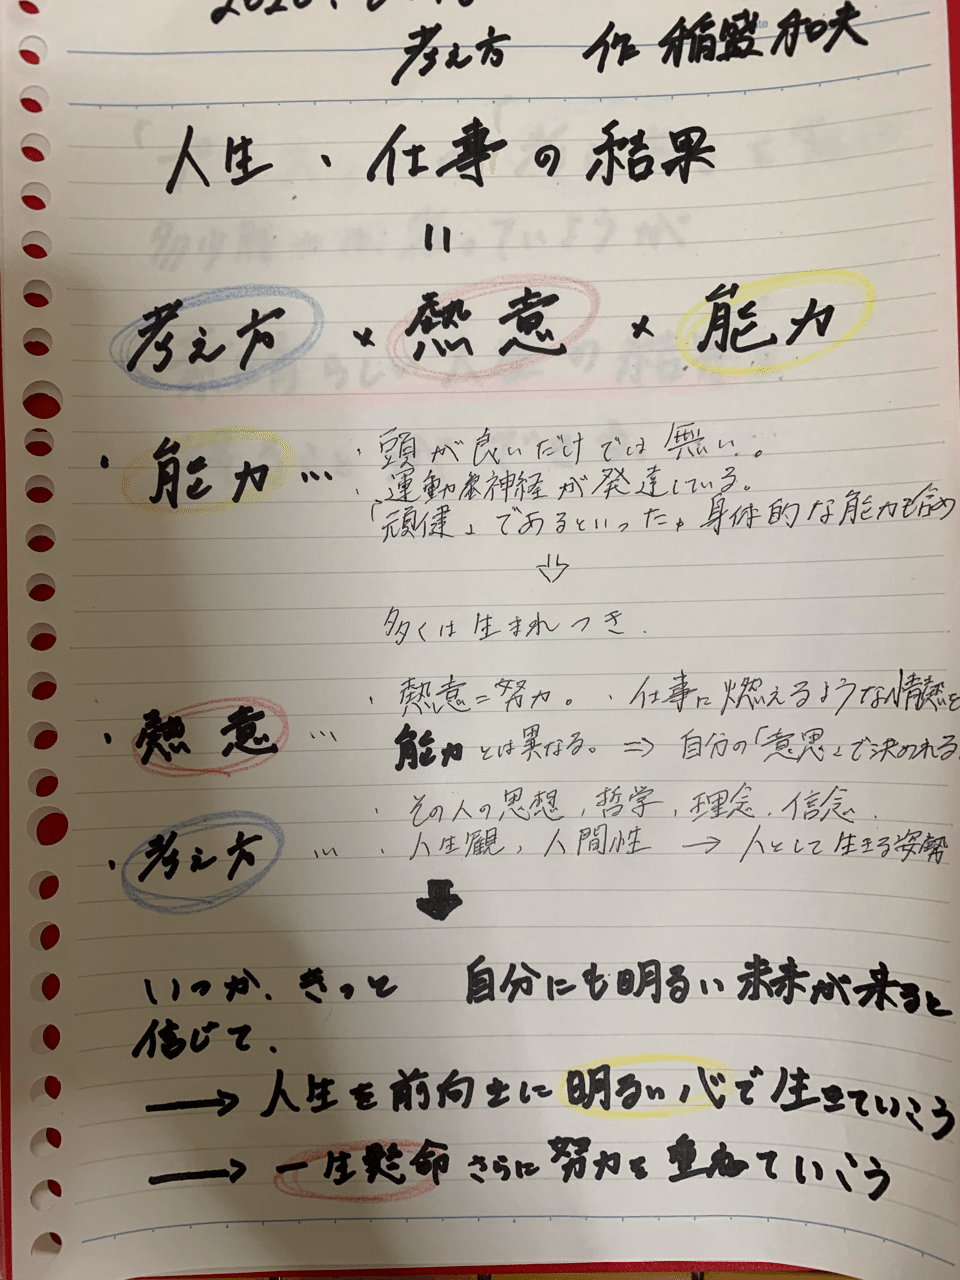 考え方 作 稲盛 和夫
人生・仕事の結果
=
考え方 × 熱意 × 能力
・能力… ・頭が良いだけでは無い。
・運動神経が発達している。
「頑健」であるといった、身体的な能力も含め
⇩
多くは生まれつき.
・熱意… ・熱意=努力。・仕事に燃えるような情熱を
能力とは異なる。⇒ 自分の「意思」で決められる
・その人の思想,哲学,理念.信念.
・考え方… ・人生観,人間性 → 人として生きる姿勢
⬇
いつか、きっと 自分にも明るい未来が来ると
信じて、
→ 人生を前向きに明るい心で生きていこう
→ 一生懸命さらに努力を重ねていこう